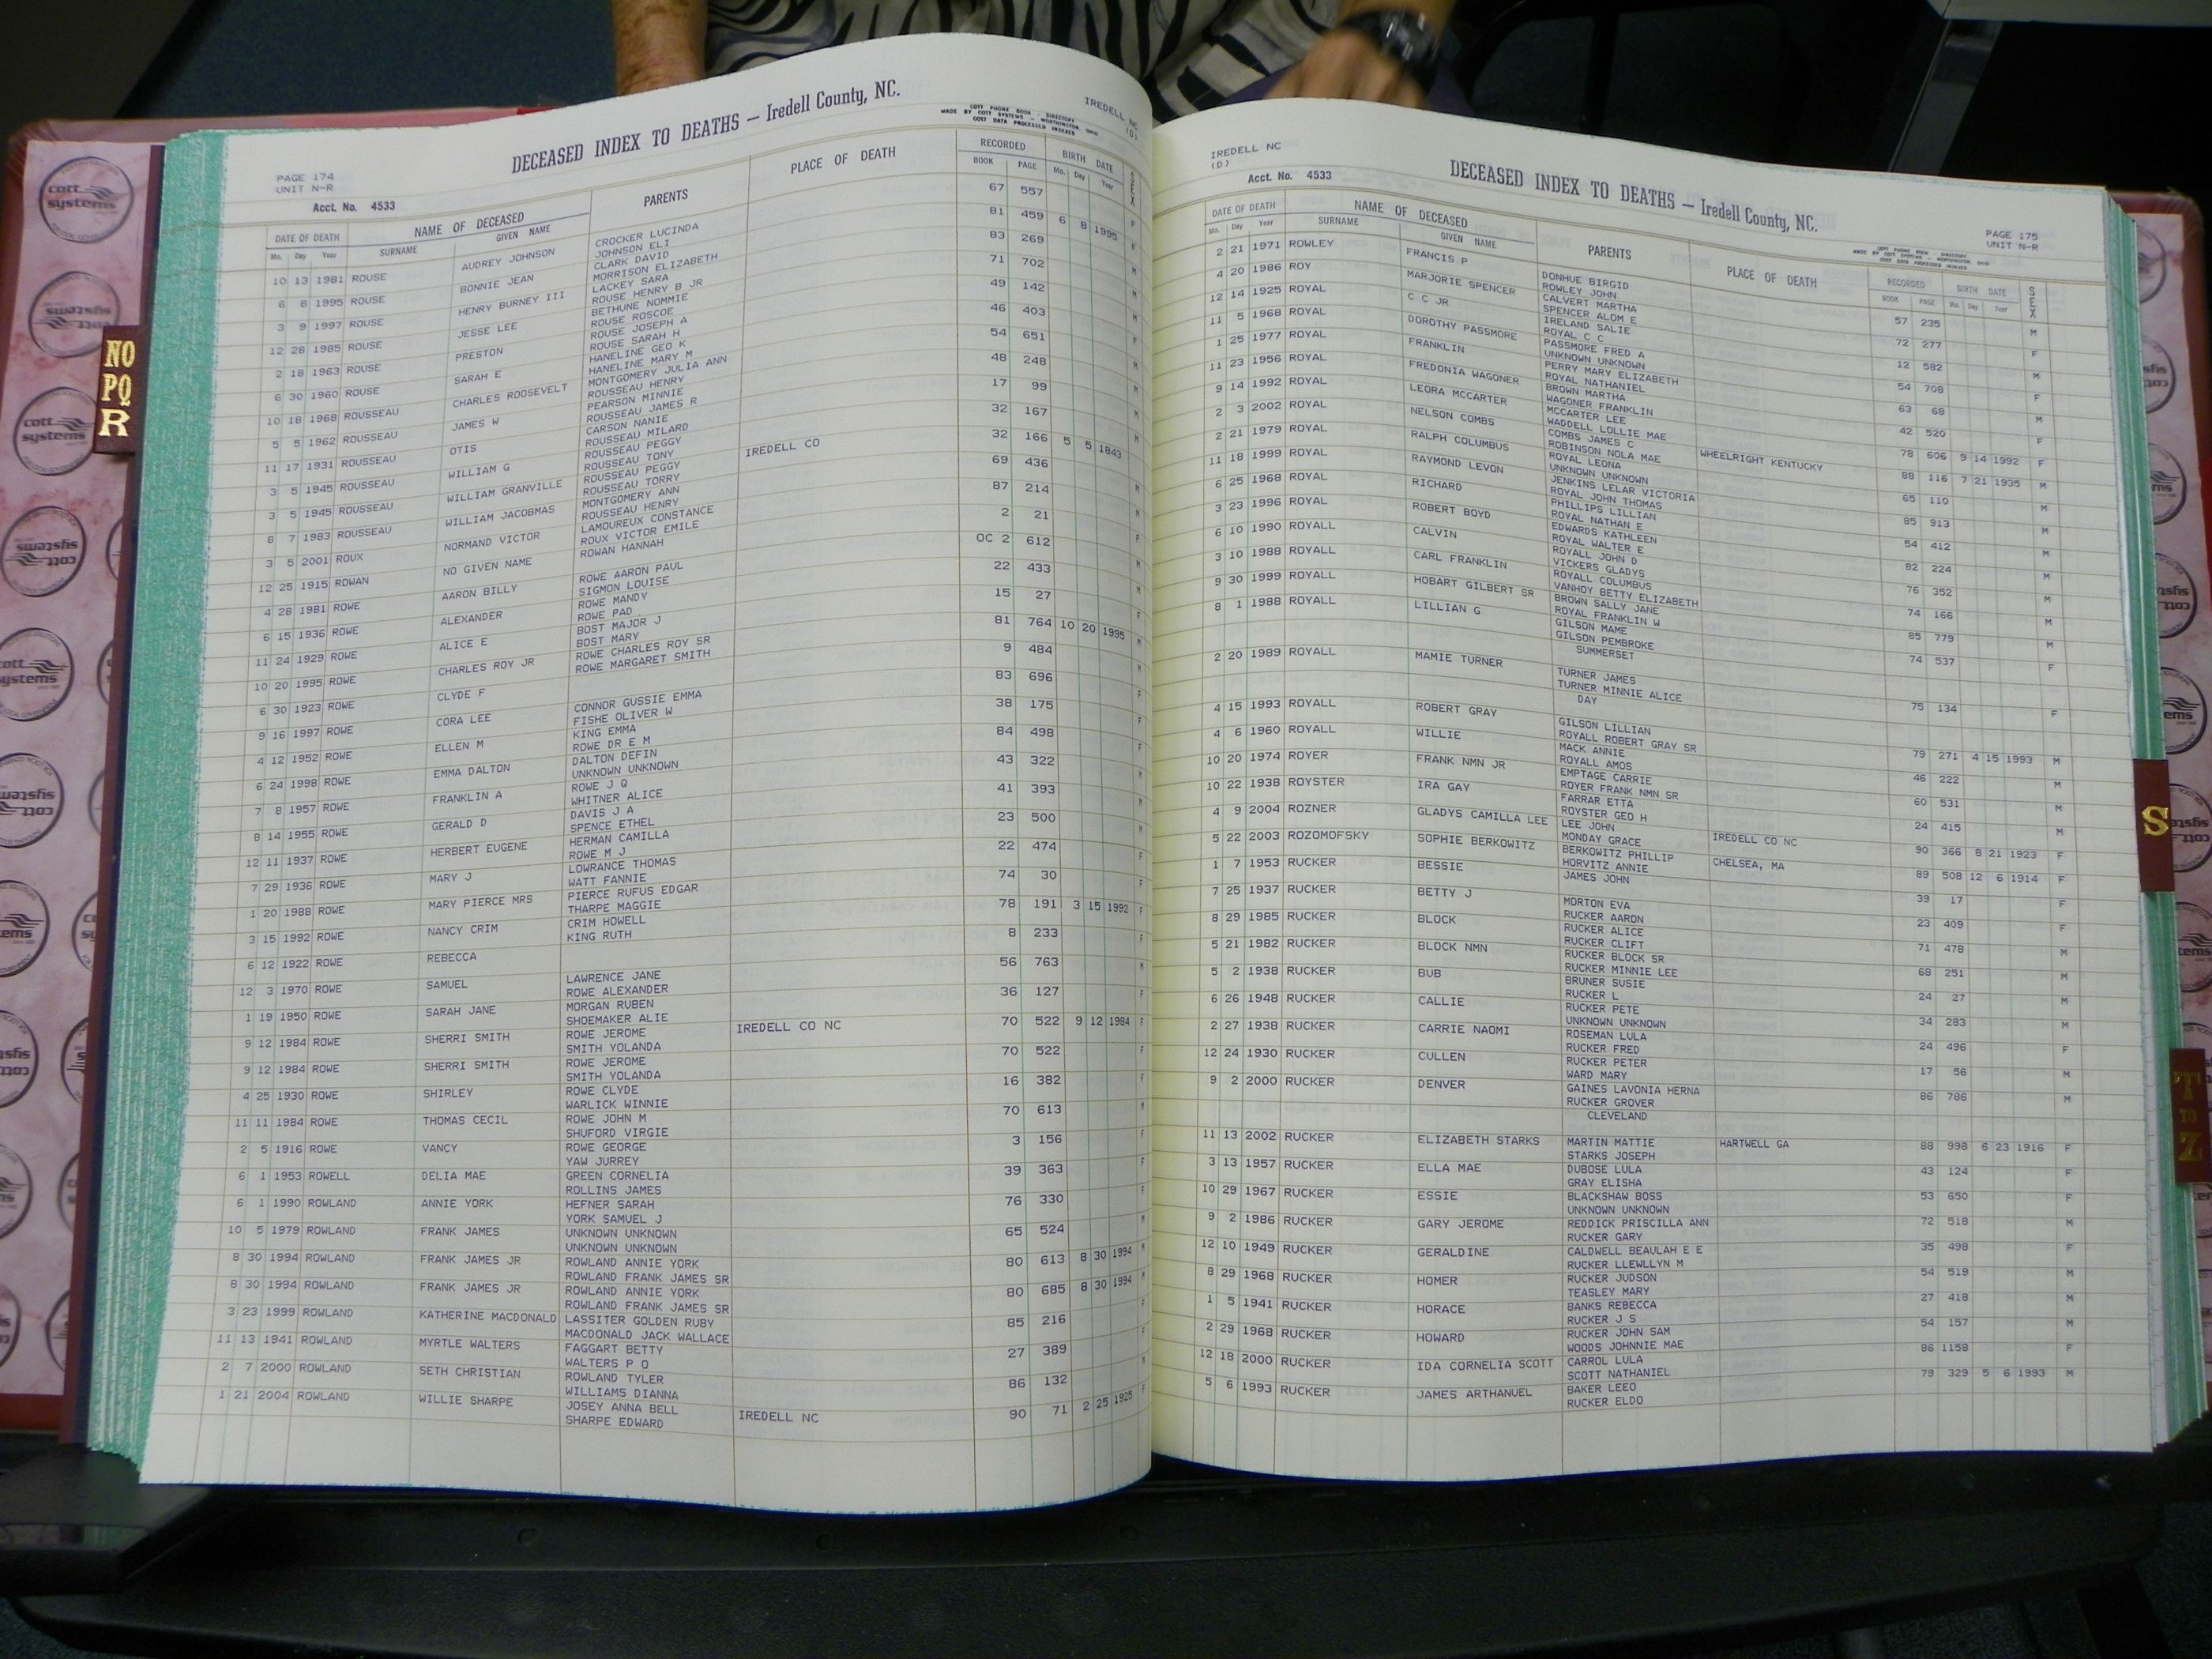 DECEASED INDEX TO DEATHS — Iredell County, NC.
COTT PHONE BOOK - DIRECTORY
MADE BY COTT SYSTEMS - WORTHINGTON, OHIO
COTT DATA PROCESSED INDEXES
IREDELL NC
(D)
PAGE 174
UNIT N-R
Acct. No. 4533
DATE OF DEATH NAME OF DECEASED PARENTS PLACE OF DEATH RECORDED BIRTH DATE SEX
Mo. Day Year SURNAME GIVEN NAME BOOK PAGE Mo. Day Year
10 13 1981 ROUSE AUDREY JOHNSON CROCKER LUCINDA 67 557 F
JOHNSON ELI
6 8 1995 ROUSE BONNIE JEAN CLARK DAVID 81 459 6 8 1995 F
MORRISON ELIZABETH
3 9 1997 ROUSE HENRY BURNEY III LACKEY SARA 83 269 M
ROUSE HENRY B JR
12 28 1985 ROUSE JESSE LEE BETHUNE NOMMIE 71 702 M
ROUSE ROSCOE
2 18 1963 ROUSE PRESTON ROUSE JOSEPH A 49 142 M
ROUSE SARAH H
6 30 1960 ROUSE SARAH E HANELINE GEO K 46 403 F
HANELINE MARY M
10 18 1968 ROUSSEAU CHARLES ROOSEVELT MONTGOMERY JULIA ANN 54 651 M
ROUSSEAU HENRY
5 5 1962 ROUSSEAU JAMES W PEARSON MINNIE 48 248 M
ROUSSEAU JAMES R
11 17 1931 ROUSSEAU OTIS CARSON NANIE 17 99 M
ROUSSEAU MILARD
3 5 1945 ROUSSEAU WILLIAM G ROUSSEAU PEGGY 32 167 M
ROUSSEAU TONY
3 5 1945 ROUSSEAU WILLIAM GRANVILLE ROUSSEAU PEGGY IREDELL CO 32 166 5 5 1843
ROUSSEAU TORRY
8 7 1983 ROUSSEAU WILLIAM JACOBMAS MONTGOMERY ANN 69 436 M
ROUSSEAU HENRY
3 5 2001 ROUX NORMAND VICTOR LAMOUREUX CONSTANCE 87 214 M
ROUX VICTOR EMILE
12 25 1915 ROWAN NO GIVEN NAME ROWAN HANNAH 2 21 F
4 28 1981 ROWE AARON BILLY ROWE AARON PAUL OC 2 612 M
SIGMON LOUISE
6 15 1936 ROWE ALEXANDER ROWE MANDY 22 433 M
ROWE PAD
11 24 1929 ROWE ALICE E BOST MAJOR J 15 27 F
BOST MARY
10 20 1995 ROWE CHARLES ROY JR ROWE CHARLES ROY SR 81 764 10 20 1995 M
ROWE MARGARET SMITH
6 30 1923 ROWE CLYDE F 9 484 M
9 16 1997 ROWE CORA LEE CONNOR GUSSIE EMMA 83 696 F
FISHE OLIVER W
4 12 1952 ROWE ELLEN M KING EMMA 38 175 F
ROWE DR E M
6 24 1998 ROWE EMMA DALTON DALTON DEFIN 84 498 F
UNKNOWN UNKNOWN
7 8 1957 ROWE FRANKLIN A ROWE J Q 43 322 M
WHITNER ALICE
8 14 1955 ROWE GERALD D DAVIS J A 41 393 M
SPENCE ETHEL
12 11 1937 ROWE HERBERT EUGENE HERMAN CAMILLA 23 500 M
ROWE M J
7 29 1936 ROWE MARY J LOWRANCE THOMAS 22 474 F
WATT FANNIE
1 20 1988 ROWE MARY PIERCE MRS PIERCE RUFUS EDGAR 74 30 F
THARPE MAGGIE
3 15 1992 ROWE NANCY CRIM CRIM HOWELL 78 191 3 15 1992 F
KING RUTH
6 12 1922 ROWE REBECCA 8 233 F
12 3 1970 ROWE SAMUEL LAWRENCE JANE 56 763 M
ROWE ALEXANDER
1 19 1950 ROWE SARAH JANE MORGAN RUBEN 36 127 F
SHOEMAKER ALIE
9 12 1984 ROWE SHERRI SMITH ROWE JEROME IREDELL CO NC 70 522 9 12 1984 F
SMITH YOLANDA
9 12 1984 ROWE SHERRI SMITH ROWE JEROME 70 522 F
SMITH YOLANDA
4 25 1930 ROWE SHIRLEY ROWE CLYDE 16 382 F
WARLICK WINNIE
11 11 1984 ROWE THOMAS CECIL ROWE JOHN M 70 613 M
SHUFORD VIRGIE
2 5 1916 ROWE VANCY ROWE GEORGE 3 156 F
YAW JURREY
6 1 1953 ROWELL DELIA MAE GREEN CORNELIA 39 363 F
ROLLINS JAMES
6 1 1990 ROWLAND ANNIE YORK HEFNER SARAH 76 330 F
YORK SAMUEL J
10 5 1979 ROWLAND FRANK JAMES UNKNOWN UNKNOWN 65 524 M
UNKNOWN UNKNOWN
8 30 1994 ROWLAND FRANK JAMES JR ROWLAND ANNIE YORK 80 613 8 30 1994 M
ROWLAND FRANK JAMES SR
8 30 1994 ROWLAND FRANK JAMES JR ROWLAND ANNIE YORK 80 685 8 30 1994 M
ROWLAND FRANK JAMES SR
3 23 1999 ROWLAND KATHERINE MACDONALD LASSITER GOLDEN RUBY 85 216 F
MACDONALD JACK WALLACE
11 13 1941 ROWLAND MYRTLE WALTERS FAGGART BETTY 27 389 F
WALTERS P O
2 7 2000 ROWLAND SETH CHRISTIAN ROWLAND TYLER 86 132 M
WILLIAMS DIANNA
1 21 2004 ROWLAND WILLIE SHARPE JOSEY ANNA BELL IREDELL NC 90 71 2 25 1925 F
SHARPE EDWARD
IREDELL NC
(D)
Acct. No. 4533
DECEASED INDEX TO DEATHS — Iredell County, NC.
PAGE 175
UNIT N-R
DATE OF DEATH NAME OF DECEASED PARENTS PLACE OF DEATH RECORDED BIRTH DATE SEX
Mo. Day Year SURNAME GIVEN NAME BOOK PAGE Mo. Day Year
2 21 1971 ROWLEY FRANCIS P DONHUE BIRGID 57 235 M
ROWLEY JOHN
4 20 1986 ROY MARJORIE SPENCER CALVERT MARTHA 72 277 F
SPENCER ALOM E
12 14 1925 ROYAL C C JR IRELAND SALIE 12 582 M
ROYAL C C
11 5 1968 ROYAL DOROTHY PASSMORE PASSMORE FRED A 54 708 F
UNKNOWN UNKNOWN
1 25 1977 ROYAL FRANKLIN PERRY MARY ELIZABETH 63 68 M
ROYAL NATHANIEL
11 23 1956 ROYAL FREDONIA WAGONER BROWN MARTHA 42 520 F
WAGONER FRANKLIN
9 14 1992 ROYAL LEORA MCCARTER MCCARTER LEE WHEELRIGHT KENTUCKY 78 606 9 14 1992 F
WADDELL LOLLIE MAE
2 3 2002 ROYAL NELSON COMBS COMBS JAMES C 88 116 7 21 1935 M
ROBINSON NOLA MAE
2 21 1979 ROYAL RALPH COLUMBUS ROYAL LEONA 65 110 M
UNKNOWN UNKNOWN
11 18 1999 ROYAL RAYMOND LEVON JENKINS LELAR VICTORIA 85 913 M
ROYAL JOHN THOMAS
6 25 1968 ROYAL RICHARD PHILLIPS LILLIAN 54 412 M
ROYAL NATHAN E
3 23 1996 ROYAL ROBERT BOYD EDWARDS KATHLEEN 82 224 M
ROYAL WALTER E
6 10 1990 ROYALL CALVIN ROYALL JOHN D 76 352 M
VICKERS GLADYS
3 10 1988 ROYALL CARL FRANKLIN ROYALL COLUMBUS 74 166 M
VANHOY BETTY ELIZABETH
9 30 1999 ROYALL HOBART GILBERT SR BROWN SALLY JANE 85 779 M
ROYAL FRANKLIN W
8 1 1988 ROYALL LILLIAN G GILSON MAME 74 537 F
GILSON PEMBROKE
SUMMERSET
2 20 1989 ROYALL MAMIE TURNER TURNER JAMES 75 134 F
TURNER MINNIE ALICE
DAY
4 15 1993 ROYALL ROBERT GRAY GILSON LILLIAN 79 271 4 15 1993 M
ROYALL ROBERT GRAY SR
4 6 1960 ROYALL WILLIE MACK ANNIE 46 222 M
ROYALL AMOS
10 20 1974 ROYER FRANK NMN JR EMPTAGE CARRIE 60 531 M
ROYER FRANK NMN SR
10 22 1938 ROYSTER IRA GAY FARRAR ETTA 24 415 M
ROYSTER GEO H
4 9 2004 ROZNER GLADYS CAMILLA LEE LEE JOHN IREDELL CO NC 90 366 8 21 1923 F
MONDAY GRACE
5 22 2003 ROZOMOFSKY SOPHIE BERKOWITZ BERKOWITZ PHILLIP CHELSEA, MA 89 508 12 6 1914 F
HORVITZ ANNIE
1 7 1953 RUCKER BESSIE JAMES JOHN 39 17 F
MORTON EVA
7 25 1937 RUCKER BETTY J RUCKER AARON 23 409 F
RUCKER ALICE
8 29 1985 RUCKER BLOCK RUCKER CLIFT 71 478 M
RUCKER BLOCK SR
5 21 1982 RUCKER BLOCK NMN RUCKER MINNIE LEE 68 251 M
BRUNER SUSIE
5 2 1938 RUCKER BUB RUCKER L 24 27 M
RUCKER PETE
6 26 1948 RUCKER CALLIE UNKNOWN UNKNOWN 34 283 F
ROSEMAN LULA
2 27 1938 RUCKER CARRIE NAOMI RUCKER FRED 24 496 F
RUCKER PETER
12 24 1930 RUCKER CULLEN WARD MARY 17 56 M
GAINES LAVONIA HERNA
9 2 2000 RUCKER DENVER RUCKER GROVER 86 786 M
CLEVELAND
11 13 2002 RUCKER ELIZABETH STARKS MARTIN MATTIE HARTWELL GA 88 998 6 23 1916 F
STARKS JOSEPH
3 13 1957 RUCKER ELLA MAE DUBOSE LULA 43 124 F
GRAY ELISHA
10 29 1967 RUCKER ESSIE BLACKSHAW BOSS 53 650 F
UNKNOWN UNKNOWN
9 2 1986 RUCKER GARY JEROME REDDICK PRISCILLA ANN 72 518 M
RUCKER GARY
12 10 1949 RUCKER GERALDINE CALDWELL BEAULAH E E 35 498 F
RUCKER LLEWLLYN M
8 29 1968 RUCKER HOMER RUCKER JUDSON 54 519 M
TEASLEY MARY
1 5 1941 RUCKER HORACE BANKS REBECCA 27 418 M
RUCKER J S
2 29 1968 RUCKER HOWARD RUCKER JOHN SAM 54 157 M
WOODS JOHNNIE MAE
12 18 2000 RUCKER IDA CORNELIA SCOTT CARROL LULA 86 1158 F
SCOTT NATHANIEL
5 6 1993 RUCKER JAMES ARTHANUEL BAKER LEEO 79 329 5 6 1993 M
RUCKER ELDO
NO
PQ
R
S
T
TO
Z
cott
systems